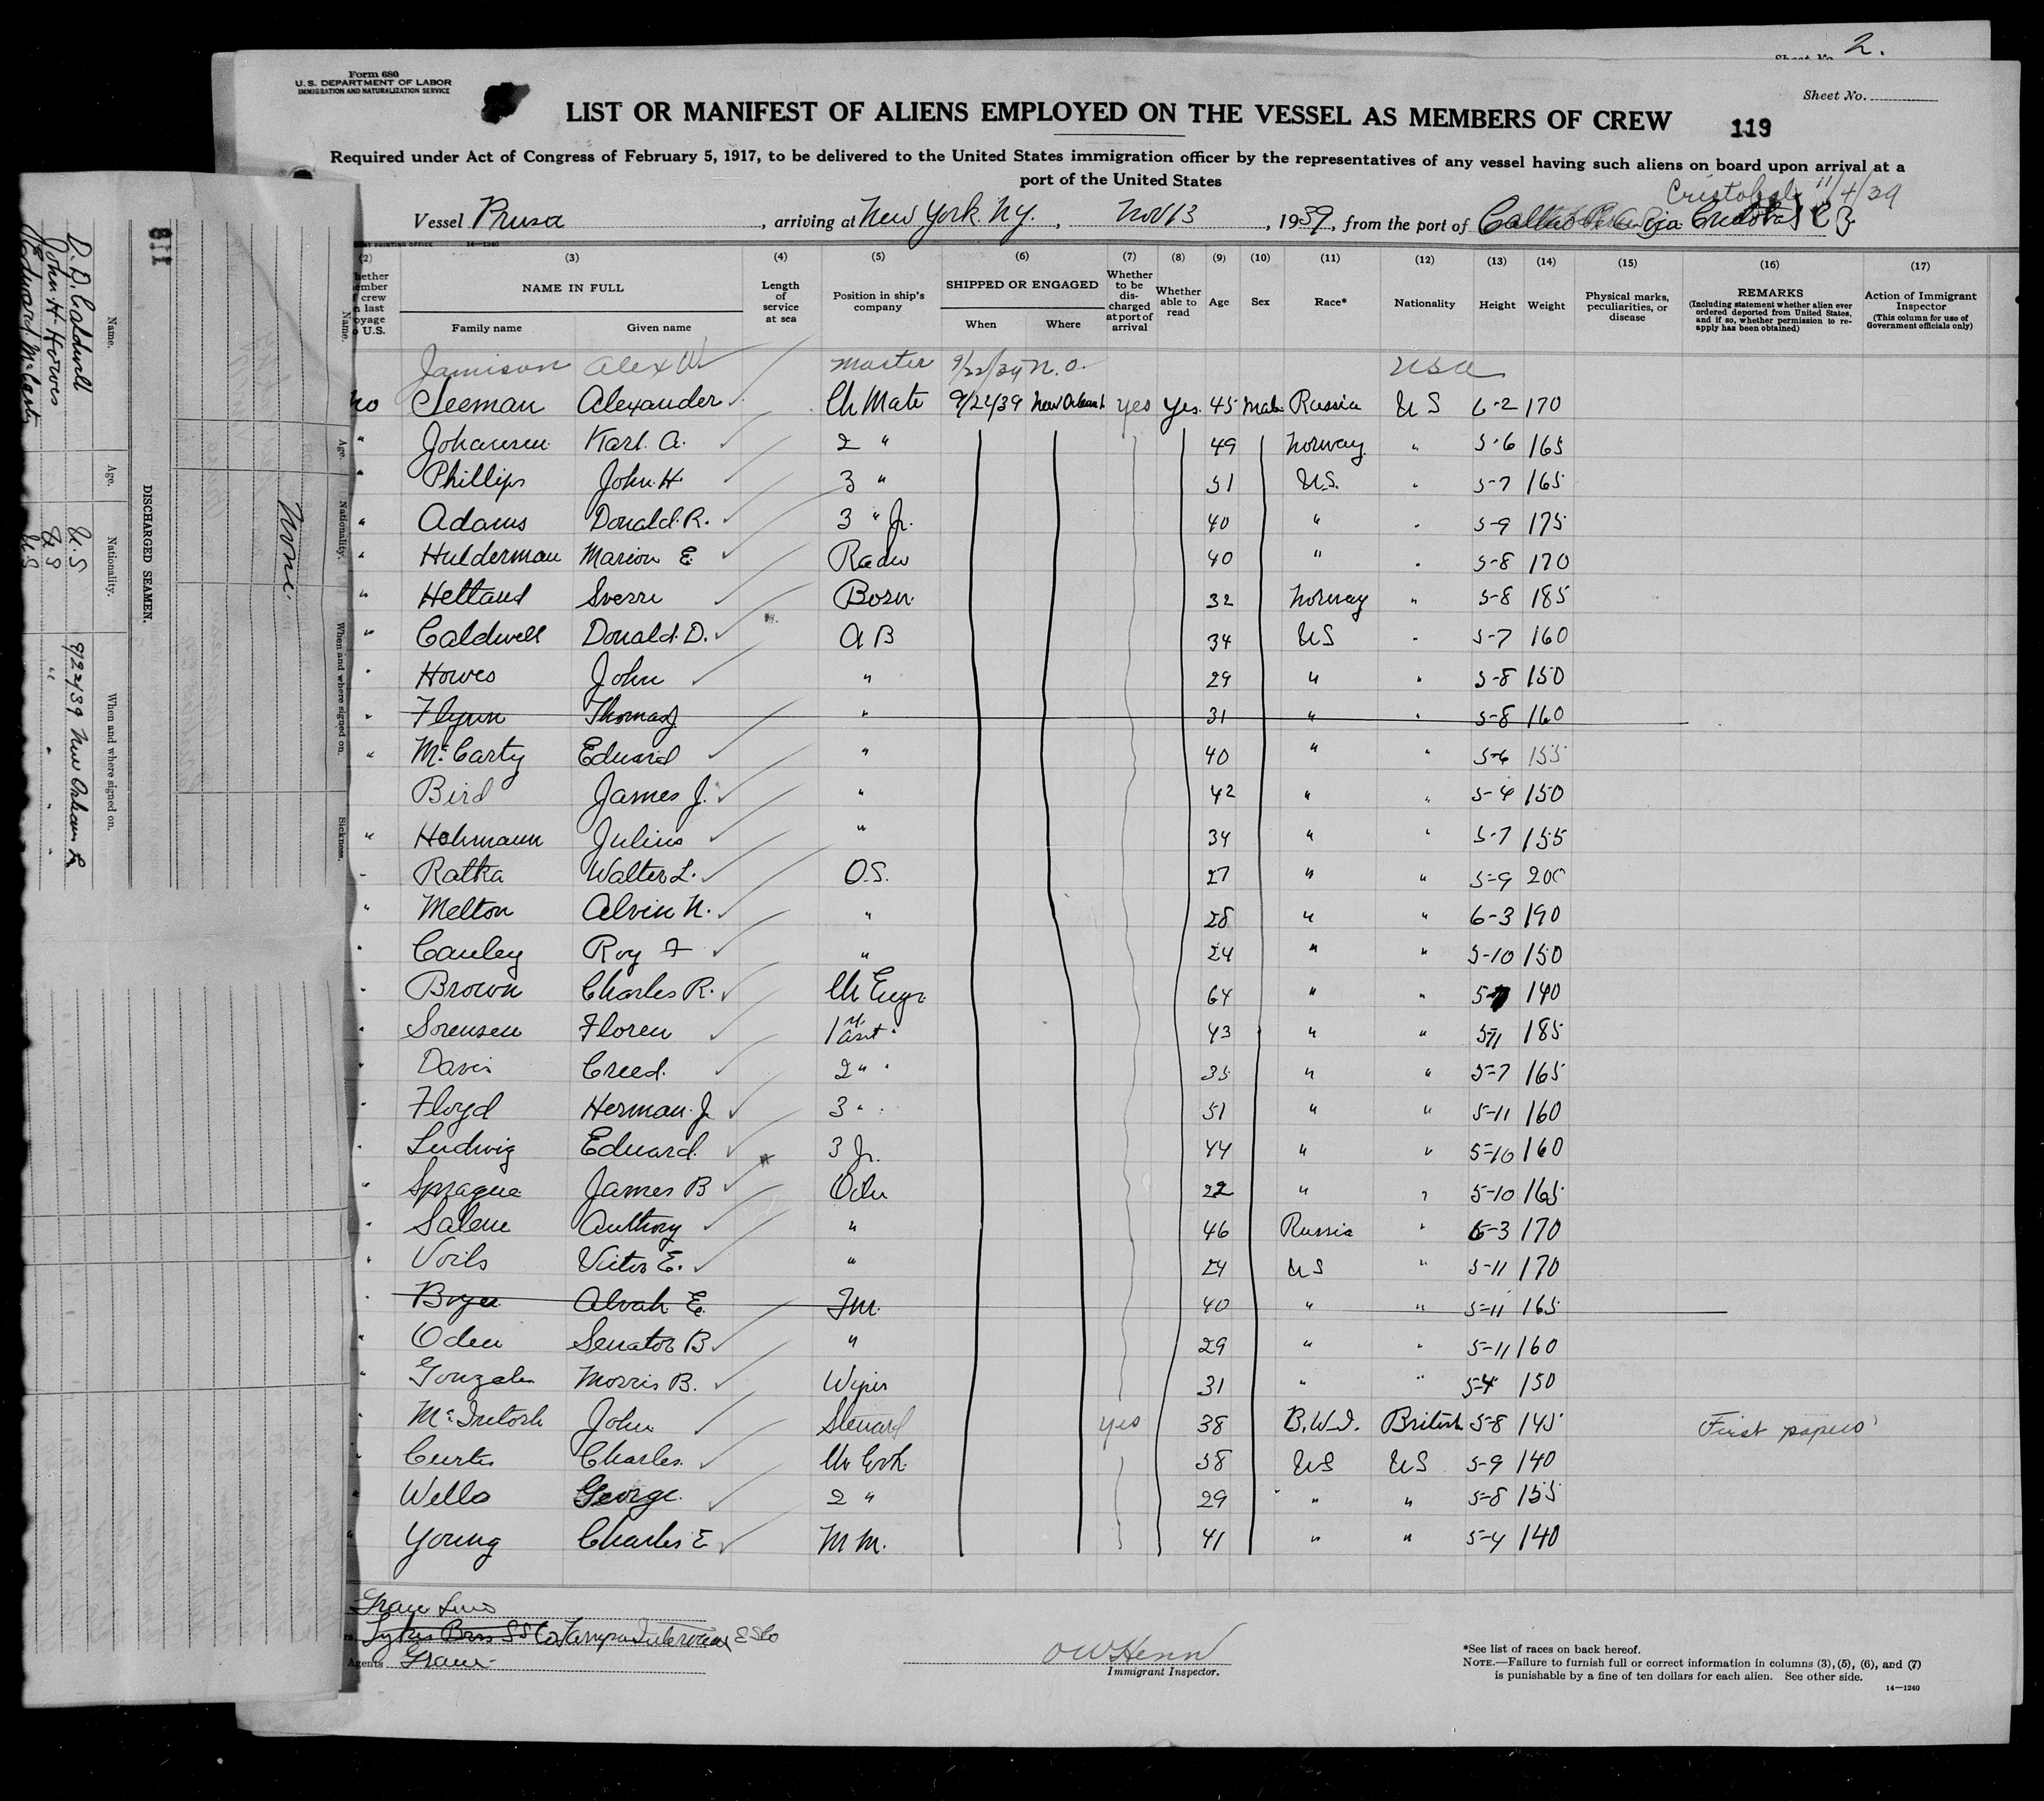 2.
Sheet No.
Form 680
U.S. DEPARTMENT OF LABOR
IMMIGRATION AND NATURALIZATION SERVICE
Sheet No.
LIST OR MANIFEST OF ALIENS EMPLOYED ON THE VESSEL AS MEMBERS OF CREW
119
Required under Act of Congress of February 5, 1917, to be delivered to the United States immigration officer by the representatives of any vessel having such aliens on board upon arrival at a
port of the United States
Cristobal 11/4/39
Vessel Prusa, arriving at New York. N.Y., Nov 13, 1939, from the port of Cristobal C Z
14—1240
(2) (3) (4) (5) (6) (7) (8) (9) (10) (11) (12) (13) (14) (15) (16) (17)
NAME IN FULL
Family name Given name
Length of service at sea
Position in ship's company
SHIPPED OR ENGAGED
When Where
Whether to be discharged at port of arrival
Whether able to read
Age
Sex
Race*
Nationality
Height
Weight
Physical marks, peculiarities, or disease
REMARKS
(Including statement whether alien ever ordered deported from United States, and if so, whether permission to reapply has been obtained)
Action of Immigrant Inspector
(This column for use of Government officials only)
Jamison Alex W Master 9/22/39 N.O. USA
No Seeman Alexander Ch Mate 9/22/39 New Orleans yes yes 45 Male Russia US 6-2 170
" Johansen Karl. A. 2 " 49 Norway " 5-6 165
" Phillips John. H. 3 " 51 U.S. " 5-7 165
" Adams Donald. R. 3 " Jr. 40 " " 5-9 175
" Hulderman Marion E. Radio 40 " " 5-8 170
" Heltand Sverre Bosn. 32 Norway " 5-8 185
" Caldwell Donald. D. A B 34 US " 5-7 160
" Howes John " 29 " " 5-8 150
" Flynn Thomas J " 31 " " 5-8 160
" McCarty Edward " 40 " " 5-6 155
Bird James J. " 42 " " 5-4 150
" Hohmann Julius " 34 " " 5-7 155
" Ratka Walter L. O.S. 27 " " 5-9 200
" Melton Alvin N. " 28 " " 6-3 190
" Cauley Roy F " 24 " " 5-10 150
" Brown Charles R. Ch Engr 64 " " 140
" Sorensen Floren 1st Asst " 43 " " 5-11 185
" Davis Creed. 2 " " 35 " " 5-7 165
" Floyd Herman. J. 3 " " 51 " " 5-11 160
" Ludwig Edward. 3 Jr. 44 " " 5-10 160
" Sprague James B Oiler 22 " " 5-10 165
" Salem Anthony " 46 Russia " 6-3 170
" Voils Victor E. " 24 US " 5-11 170
" Alvah E. Fm. 40 " " 5-11 165
" Oden Senator B " 29 " " 5-11 160
" Gonzales Morris B. Wiper 31 " " 5-4 150
" McIntosh John Steward yes 38 B.W.I. British 5-8 145 First papers
" Curtis Charles. Ch Cook 58 US US 5-9 140
" Wells George. 2 " 29 " " 5-8 155
" Young Charles E M M. 41 " " 5-4 140
Grace Line
Sykes Bros SS Co Tampa
Agents Grace
O W Henn
Immigrant Inspector.
*See list of races on back hereof.
NOTE.—Failure to furnish full or correct information in columns (3), (5), (6), and (7)
is punishable by a fine of ten dollars for each alien. See other side.
14—1240
118
DISCHARGED SEAMEN.
Name. Age. Nationality. When and where signed on.
D. D. Caldwell U.S 9/22/39 New Orleans La
John H. Howes U S " "
Edward McCarty U S " "
Name. Age. Nationality. When and where signed on. Sickness.
None.